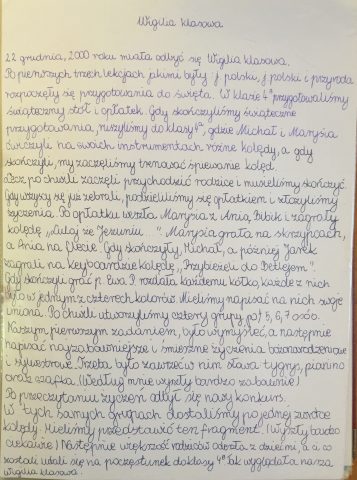 Wigilia klasowa
22 grudnia, 2000 roku miała odbyć się Wigilia klasowa.
Po pierwszych trzech lekcjach jakimi były: j. polski, j. polski i przyroda
rozpoczęły się przygotowania do święta. W klasie 4a przygotowaliśmy
świąteczny stół i opłatek. Gdy skończyliśmy świąteczne
przygotowania, ruszyliśmy do klasy 4a, gdzie Michał i Marysia
ćwiczyli na swoich instrumentach różne kolędy, a gdy
skończyli, my zaczęliśmy trenować śpiewanie kolęd.
Lecz po chwili zaczęli przychodzić rodzice i musieliśmy skończyć.
Gdy wszyscy się już zebrali, podzieliliśmy się opłatkiem i złożyliśmy
życzenia. Po opłatku weszła Marysia z Anią, Bibik i zagrały
kolędę „Lulaj że Jezuniu...". Marysia grała na skrzypcach,
a Ania na flecie. Gdy skończyły, Michał, a później Jarek
zagrali na keyboardzie kolędę „Przybieżeli do Betlejem".
Gdy skończyli grać p. Ewa P. rozdała każdemu kółko, każde z nich
było w jednym z czterech kolorów. Mieliśmy napisać na nich swoje
imiona. Po chwili utworzyliśmy cztery grupy po 5, 6, 7 osób.
Naszym, pierwszym zadaniem, było wymyśleć, a następnie
napisać najzabawniejsze i śmieszne życzenia bożonarodzeniowe
i sylwestrowe. Trzeba było zawrzeć w nim słowa: tygrys, pianino
oraz czapka. (Według mnie wyszły bardzo zabawnie)
Po przeczytaniu życzeń odbył się nowy konkurs.
W tych samych grupach dostaliśmy po jednej zwrotce
kolędy. Mieliśmy przedstawić ten fragment. (Wyszły bardzo
ciekawie) Następnie większość rodziców odeszła z dziećmi, a ci co
zostali udali się na poczęstunek do klasy 4a. Tak wyglądała nasza
Wigilia klasowa.